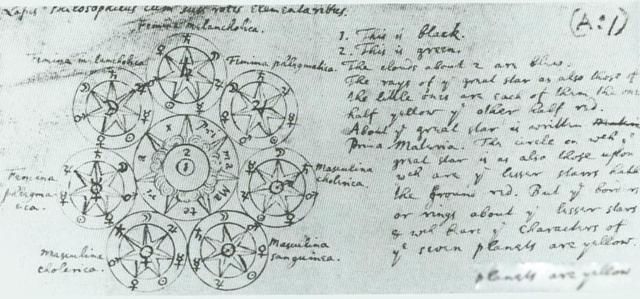 Lapis Philosophicus cum suis rotis Elementaribus.
Femina melancholica.
Femina melancholica.
Femina phlegmatica.
Femina
phlegma
tica.
Masculina
cholerica.
Masculina
cholerica.
Masculina
sanguinea.
(A:1)
1. This is black.
2. This is green.
The clouds about 2 are blew.
The rays of yᵉ great star as also those of
the little ones are each of them the one
half yellow yᵉ other half red.
About yᵉ great star is written
Prima Materia. The circle on wᶜʰ yᵉ
great star is as also those upon
wᶜʰ are yᵉ lesser starrs hath
the ground red. But yᵉ borders
or rings about yᵉ lesser stars
& wᶜʰ bare yᵉ characters of
yᵉ seven planets are yellow
planets are yellow